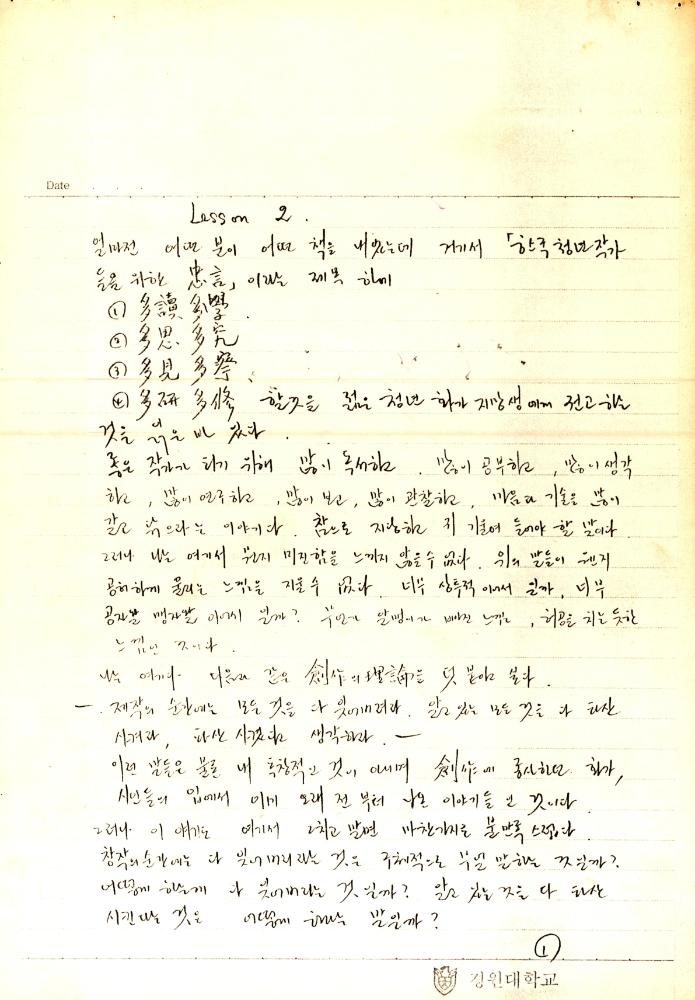 Date
Lesson 2.
얼마전 어떤 분이 어떤 책을 내었는데 거기서 「한국청년작가
들을 위한 忠言」이라는 제목 하에
① 多讀 多學
② 多思 多究
③ 多見 多察
④ 多研 多修 할것을 젊은 청년 화가 지망생에게 권고하는
것을 읽은 바 있다.
좋은 작가가 되기 위해 많이 독서하고, 많이 공부하고, 많이 생각
하고, 많이 연구하고, 많이 보고, 많이 관찰하고, 마음과 기술을 많이
갈고 닦으라는 이야기다. 참으로 지당하고 귀 기울여 들어야 할 말이다.
그러나 나는 여기서 뭔지 미진함을 느끼지 않을 수 없다. 위의 말들이 웬지
공허하게 울리는 느낌을 지울 수 없다. 너무 상투적이어서 일까, 너무
공자왈 맹자왈 이어서 일까? 무언가 알맹이가 빠진 느낌, 허공을 치는 듯한
느낌인 것이다.
나는 여기다 다음과 같은 創作의 理論을 덧붙이고 싶다.
―. 제작의 순간에는 모든 것을 다 잊어버려라. 알고 있는 모든 것을 다 타산
시켜라, 타산 시켰다고 생각하라. ―
이런 말들은 물론 내 독창적인 것이 아니며 創作에 종사하던 화가,
시인들의 입에서 이미 오래 전부터 나온 이야기들인 것이다.
그러나 이 얘기도 여기서 그치고 말면 마찬가지로 불만족스럽다.
창작의 순간에는 다 잊어버리라는 것은 구체적으로 무얼 말하는 것일까?
어떻게 하는게 다 잊어버리는 것일까? 알고 있는 것을 다 타산
시킨다는 것은 어떻게 하라는 말일까?
①
경원대학교